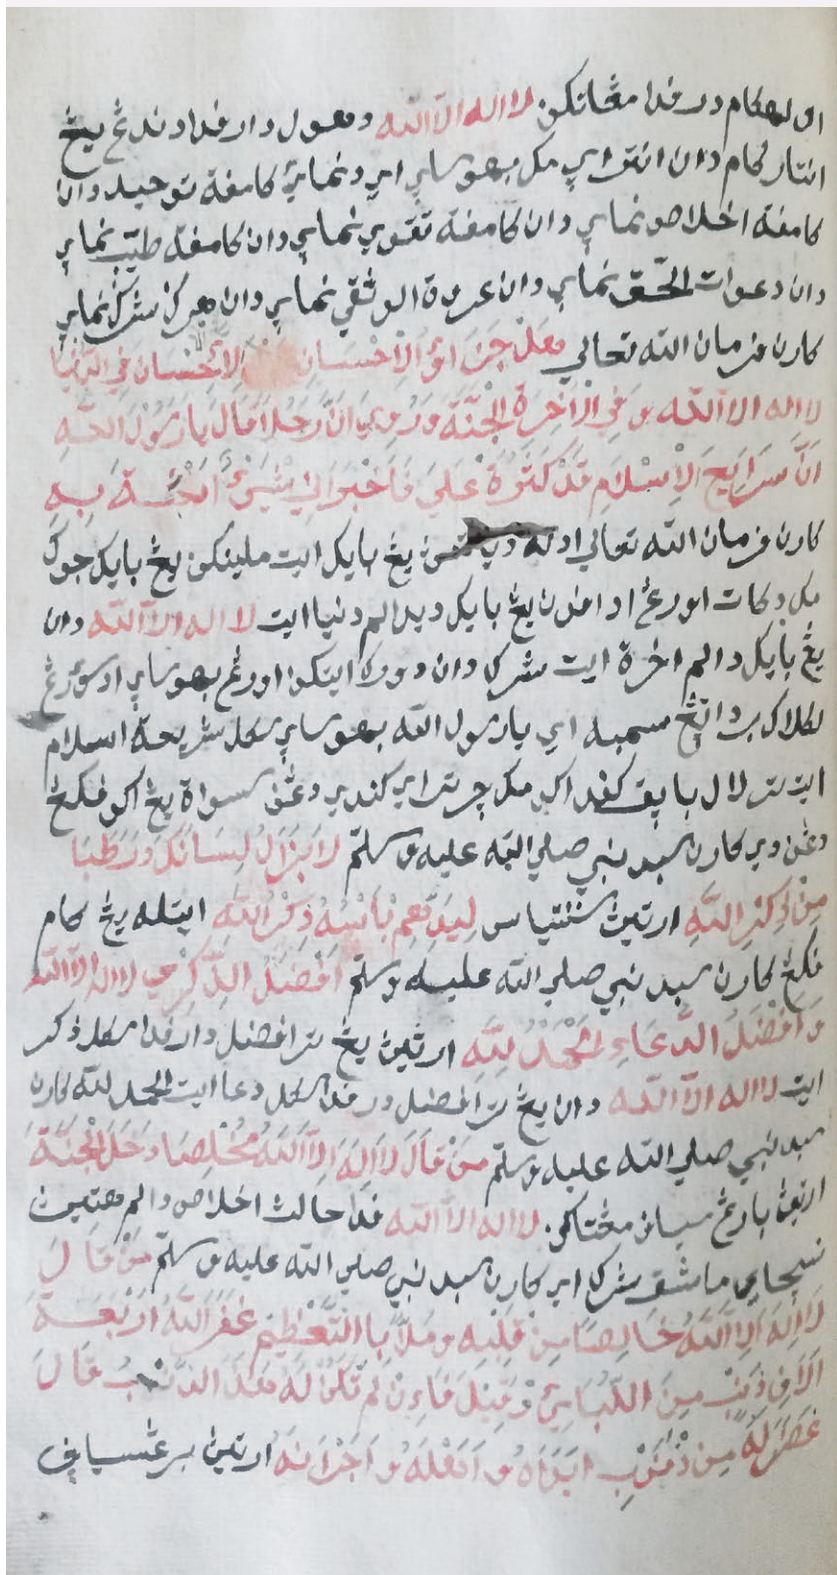 اوله كام درفدا مڠاتكن لا اله الا الله دمعول دارفدا دندڠ يڠ
انتار كام دان انتق اي مك بهوساي اي دنماي كامفة توحيد دان
كامفة اخلاص نماي دان كامفة تقوي نماي دان كامفة طيب نماي
دان دعوات الحق نماي دان عروة الوثقي نماي دان هرك شرك نماي
كارن فرمان الله تعالي هل جزاؤ الاحسان الا الاحسان في الدنيا
لا اله الا الله و في الاخرة الجنة و روي ان رجلا قال يا رسول الله
ان سرايع الاسلام قد كثرة علي فاخبرني بشيئ به
كارن فرمان الله تعالي اد يڠ بايك ايت ملينكن يڠ بايك جوك
مك دكات اورڠ ادافن يڠ بايك ديدالم دنيا ايت لا اله الا الله دان
يڠ بايك دالم اخرة ايت شرك دان دورة ايتكن اورڠ بهوساي ادسؤرڠ
لكلاك بردانڠ سمبه اي يا رسول الله بهوساي سكل شريعة اسلام
ايت تر لال بايق كفد اكو مك چرترا اي كندي دڠن سسواة يڠ اكو فكڠ
دڠن دي كارن سبد نبي صلي الله عليه وسلم لا يزال لسانك ورطبا
من ذكر الله ارتين سنتياس ذكر الله ايتله يڠ كام
فكڠ كارن سبد نبي صلي الله عليه وسلم افضل الذكر لا اله الا الله
و افضل الدعاء الحمد لله ارتين يڠ تر افضل دارفدا سكل ذكر
ايت لا اله الا الله دان يڠ تر افضل درفدا سكل دعا ايت الحمد لله كارن
سبد نبي صلي الله عليه وسلم من قال لا اله الا الله مخلصا دخل الجنة
ارتين بارڠ سياف مڠتاكن لا اله الا الله فدا حالت اخلاص دالم هتين
نسچاي ماسق شرك اي كارن سبد نبي صلي الله عليه وسلم من قال
لا اله الا الله خالصا من قلبه و ملا با التعظيم غفر الله اربعة
الاف ذنب من الكبائر و قيل فاءن لم تكن له هذا الذنب قال
غفر له من ذنوب ابواه و اهله و اجرانه ارتين برڠسياف